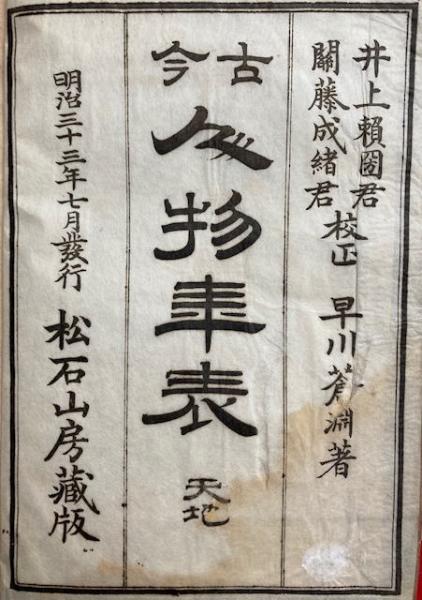 井上頼圀君
關藤成緒君 校正 早川蒼淵著
古今
人物年表
天地
明治三十三年七月發行 松石山房藏版